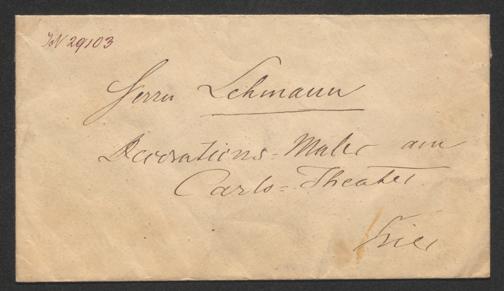 I.N 29103
Herrn Lehmann
Decorations-Maler am
Carls-Theater